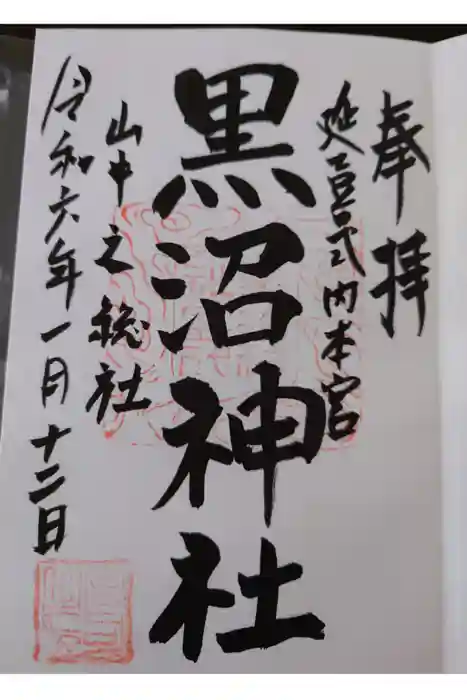 奉拝
延喜式内本宮
黒沼神社
山中之総社
令和六年一月十二日